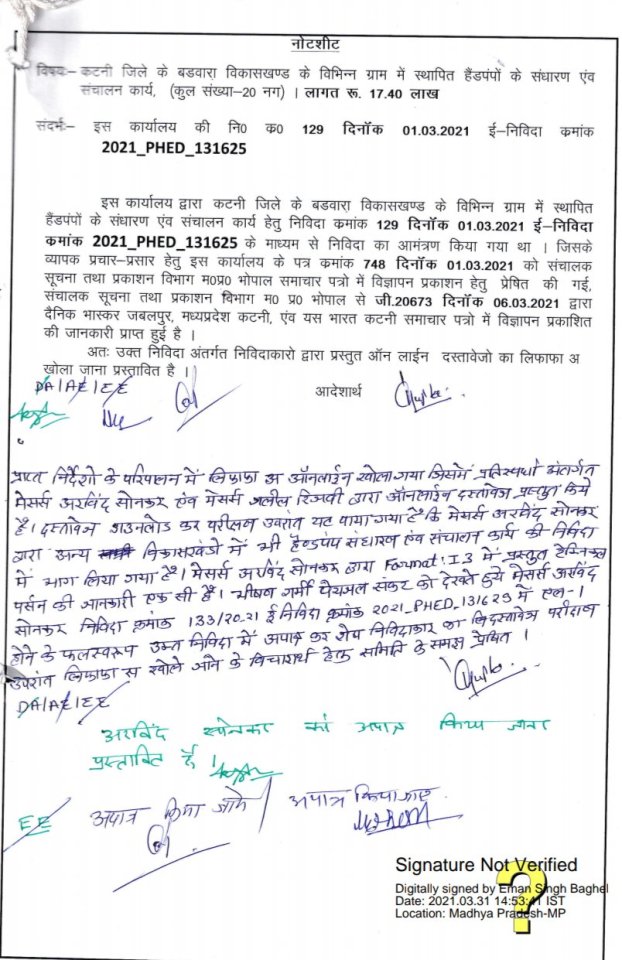 नोटशीट
विषयः– कटनी जिले के बडवारा विकासखण्ड के विभिन्न ग्राम में स्थापित हैंडपंपों के संधारण एंव
संचालन कार्य, (कुल संख्या–20 नग) । लागत रू. 17.40 लाख
संदर्भः– इस कार्यालय की नि0 क0 129 दिनॉक 01.03.2021 ई–निविदा कमांक
2021_PHED_131625
इस कार्यालय द्वारा कटनी जिले के बडवारा विकासखण्ड के विभिन्न ग्राम में स्थापित
हैंडपंपों के संधारण एंव संचालन कार्य हेतु निविदा कमांक 129 दिनॉक 01.03.2021 ई–निविदा
कमांक 2021_PHED_131625 के माध्यम से निविदा का आमंत्रण किया गया था । जिसके
व्यापक प्रचार–प्रसार हेतु इस कार्यालय के पत्र कमांक 748 दिनॉक 01.03.2021 को संचालक
सूचना तथा प्रकाशन विभाग म0प्र0 भोपाल समाचार पत्रो में विज्ञापन प्रकाशन हेतु प्रेषित की गई,
संचालक सूचना तथा प्रकाशन विभाग म0 प्र0 भोपाल से जी.20673 दिनॉक 06.03.2021 द्वारा
दैनिक भास्कर जबलपुर, मध्यप्रदेश कटनी, एंव यस भारत कटनी समाचार पत्रो में विज्ञापन प्रकाशित
की जानकारी प्राप्त हुई है ।
अतः उक्त निविदा अंतर्गत निविदाकारो द्वारा प्रस्तुत ऑन लाईन दस्तावेजो का लिफाफा अ
खोला जाना प्रस्तावित है ।
DA/AE/EE
आदेशार्थ
प्राप्त निर्देशो के परिपालन में लिफाफा अ ऑनलाईन खोला गया जिसमें प्रतिस्पर्धा अंतर्गत
मेसर्स अरविंद सोनकर एंव मेसर्स जलील रिजवी द्वारा ऑनलाईन दस्तावेज प्रस्तुत किये
है । दस्तावेज डाउनलोड कर परीक्षण उपरांत यह पाया गया है कि मेसर्स अरविंद सोनकर
द्वारा अन्य विकासखंडो में भी हैण्डपंप संधारण एंव संचालन कार्य की निविदा
में भाग लिया गया है । मेसर्स अरविंद सोनकर द्वारा Format: I3 में प्रस्तुत टेक्निकल
पर्सन की जानकारी एक सी है । भीषण गर्मी पेयजल संकट को देखते हुये मेसर्स अरविंद
सोनकर निविदा क्रमांक 133/20-21 ई निविदा क्रमांक 2021_PHED_131629 में एल-1
होने के फलस्वरूप उक्त निविदा में अपात्र कर शेष निविदाकार का दस्तावेज परीक्षण
उपरांत लिफाफा स खोले जाने के विचारार्थ हेतु समिति के समक्ष प्रेषित ।
DA/AE/EE
अरविंद सोनकर को अपात्र किया जाना
प्रस्तावित है ।
EE
अपात्र किया जावे
अपात्र किया जाए
Signature Not Verified
Digitally signed by Eman Singh Baghel
Date: 2021.03.31 14:53:41 IST
Location: Madhya Pradesh-MP